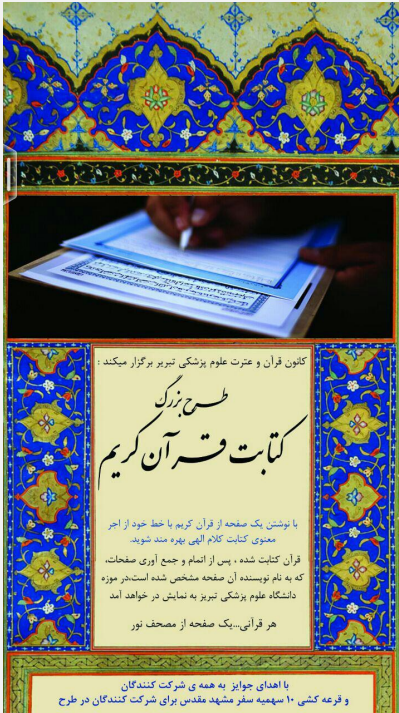 کانون قرآن و عترت علوم پزشکی تبریر برگزار میکند :
طرح بزرگ
کتابت قرآن کریم
با نوشتن یک صفحه از قرآن کریم با خط خود از اجر
معنوی کتابت کلام الهی بهره مند شوید.
قرآن کتابت شده ، پس از اتمام و جمع آوری صفحات،
که به نام نویسنده آن صفحه مشخص شده است،در موزه
دانشگاه علوم پزشکی تبریز به نمایش در خواهد آمد
هر قرآنی...یک صفحه از مصحف نور
با اهدای جوایز به همه ی شرکت کنندگان
و قرعه کشی ۱۰ سهمیه سفر مشهد مقدس برای شرکت کنندگان در طرح